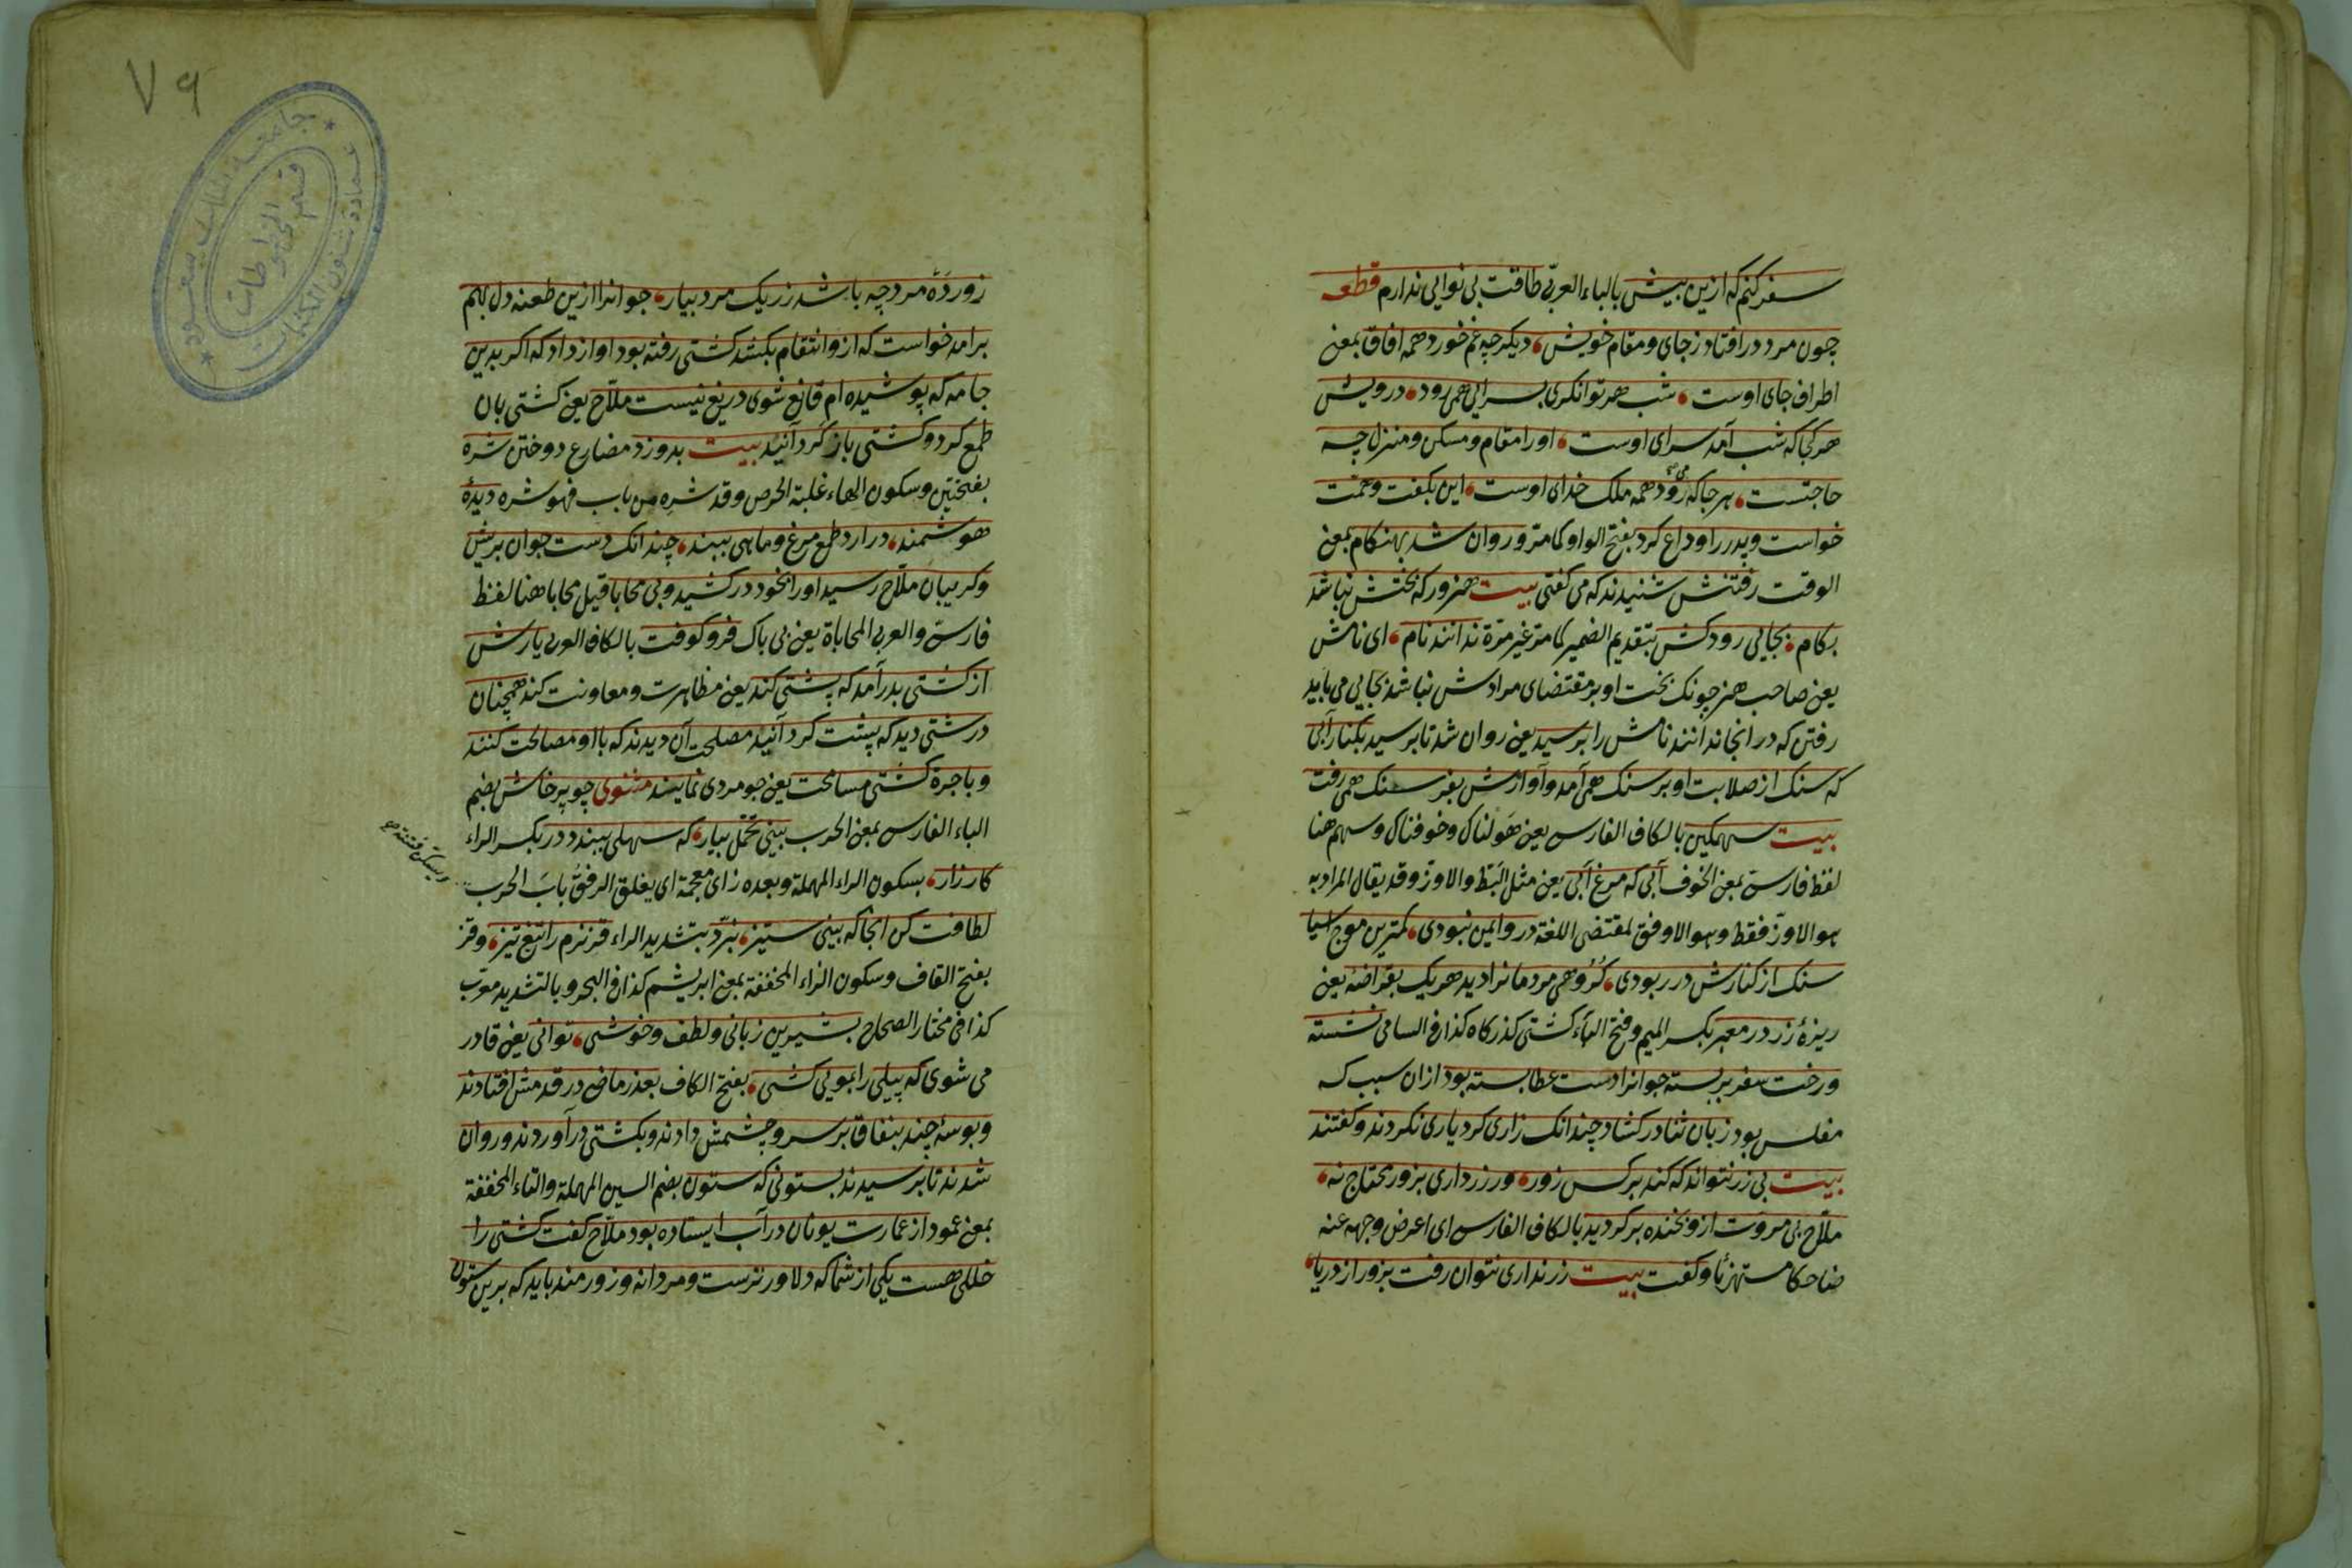 سفر کنم که ازین بیش بالباء العربیّ طاقت بی نوایی ندارم قطعه
چون مرد درافتاد زجای ومقام خویش، دیکر چه غم خورد همه افاق بمعنی
اطراف جای اوست، شب هر توانکری بسرایی همی رود، درویش
هر کجا که شب آمد سرای اوست، اورا مقام ومسکن ومنزل چه
حاجتست، هر جا که می رود همه ملک خدای اوست، این بکفت وهمت
خواست وپدر را وداع کرد بفتح الواو کما مرّ وروان شد بهنکام بمعنی
الوقت رفتنش شنیدند که می کفتی بیت هنرور که بختش نباشد
بکام، بجایی رود کش بتقدیم الضمیر کما مرّ غیر مرّة ندانند نام، ای نامش
یعنی صاحب هنر چونک بخت او بر مقتضای مرادش نباشد بجایی می باید
رفتن که در انجا ندانند نامش را برسید یعنی روان شد تا برسید بکنار آبی
که سنک از صلابت او بر سنک همی آمد وآوازش بفرسنک همی رفت
بیت سهمکین بالکاف الفارسی یعنی هولناک وخوفناک وسهم هنا
لفظ فارسیّ بمعنی الخوف آبی که مرغ آبی یعنی مثل البَطّ والاوزّ وقد یقال المراد به
هو الاوزّ فقط وهو الاوفق لمقتضی اللغة درو ایمن نبودی، کمترین موج آسیا
سنک از کنارش در ربودی، کروهی مردمانرا دید هر یک بقراضهٔ یعنی
ریزهٔ زر در معبر بکسر المیم وفتح الباء کشتی کذرکاه کذا فی السامی نشسته
ورخت سفر بربسته جوانرا دست عطا بسته بود ازان سبب که
مفلس بود زبان ثنا در کشاد چندانک زاری کرد یاری نکردند وکفتند
بیت بی زر نتواند که کند بر کس زور، ور زرداری بزور محتاج نه،
ملّاح بی مروّت ازو بخنده بر کردید بالکاف الفارسی ای اعرض وجهه عنه
ضاحکا مستهزئا وکفت بیت زر نداری نتوان رفت بزور از دریا،
زور دَهٔ مرد چه باشد زر یک مرد بیار، جوانرا ازین طعنه دل بهم
برامد خواست که ازو انتقام بکشد کشتی رفته بود اواز داد که اکر بدین
جامه که پوشیده ام قانع شوی دریغ نیست ملّاح یعنی کشتی بان
طمع کرد وکشتی باز کردانید بیت بدوزد مضارع دوختن شره
بفتحتین وسکون الهاء غلبة الحرص وقد شره من باب فهو شره دیدهٔ
هوشمند، درارد طمع مرغ وماهی ببند، چندانک دست جوان بریش
وکریبان ملّاح رسید اورا بخود در کشید وبی محابا قیل محابا هنا لفظ
فارسیّ والعربی المحاباة یعنی بی باک فرو کوفت بالکاف العربی یارش
از کشتی بدر آمد که پشتی کند یعنی مظاهرت ومعاونت کند همچنان
درشتی دید که پشت کردانید مصلحت آن دیدند که با او مصالحت کنند
وباجرهٔ کشتی مسامحت یعنی جومردی نمایند مثنوی چو پرخاش بضم
الباء الفارسی بمعنی الحرب بینی تحمّل بیار، که سهلی ببندد در بکسر الراء
کارزار، بسکون الراء المهملة وبعده زای معجمة ای یغلق الرفق بابَ الحرب
ویسکن فتنته صح
لطافت کن انجا که بینی ستیز، نبرّد بتشدید الراء قز نرم را تیغ تیز، وقز
بفتح القاف وسکون الزاء المخففة بمعنی ابریشم کذا فی البحر وبالتشدید معرّب
کذا فی مختار الصحاح بشیرین زبانی ولطف وخوشی، توانی یعنی قادر
می شوی که پیلی را بمویی کشی، بفتح الکاف بعذر ماضی در قدمش افتادند
وبوسهٔ چند بنفاق بر سر وچشمش دادند وبکشتی در آوردند وروان
شدند تا برسیدند بستونی که ستون بضم السین المهملة والتاء المخففة
بمعنی عمود از عمارت یونان در آب ایستاده بود ملّاح کفت کشتی را
خللی هست یکی از شما که دلاورترست ومردانه وزورمند باید که برین ستون
جامعة الملك سعود
عمادة شئون المكتبات
قسم المخطوطات
٧٩